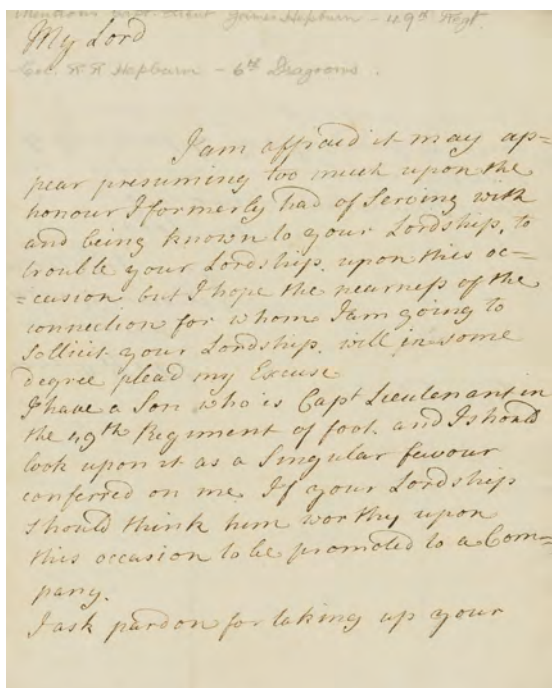 Mentions Capt-Lieut James Hepburn - 49th Regt.
My Lord
Col. R R Hepburn - 6th Dragoons.
I am affraid it may ap=
pear presuming too much upon the
honour I formerly had of Serving with
and being known to your Lordship, to
trouble your Lordship, upon this oc=
=casion but I hope the nearness of the
connection for whome I am going to
Sollicit your Lordship, will in some
degree plead my Excuse
I have a Son who is Capt Lieutenant in
the 49th Regiment of foot. and I should
look upon it as a Singular favour
conferred on me If your Lordship
should think him worthy upon
this occasion to be promoted to a Com=
pany.
I ask pardon for taking up your